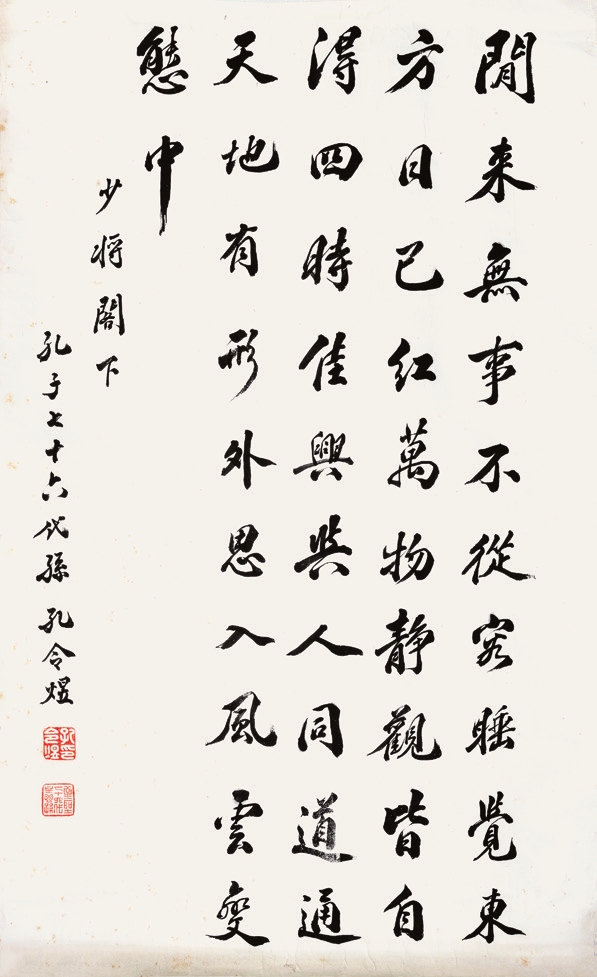 閒来無事不從容睡覺東
方日已红萬物静觀皆自
淂四時佳興與人同道通
天地有形外思入風雲變
態中
少将閣下
孔子七十六代孫孔令煜